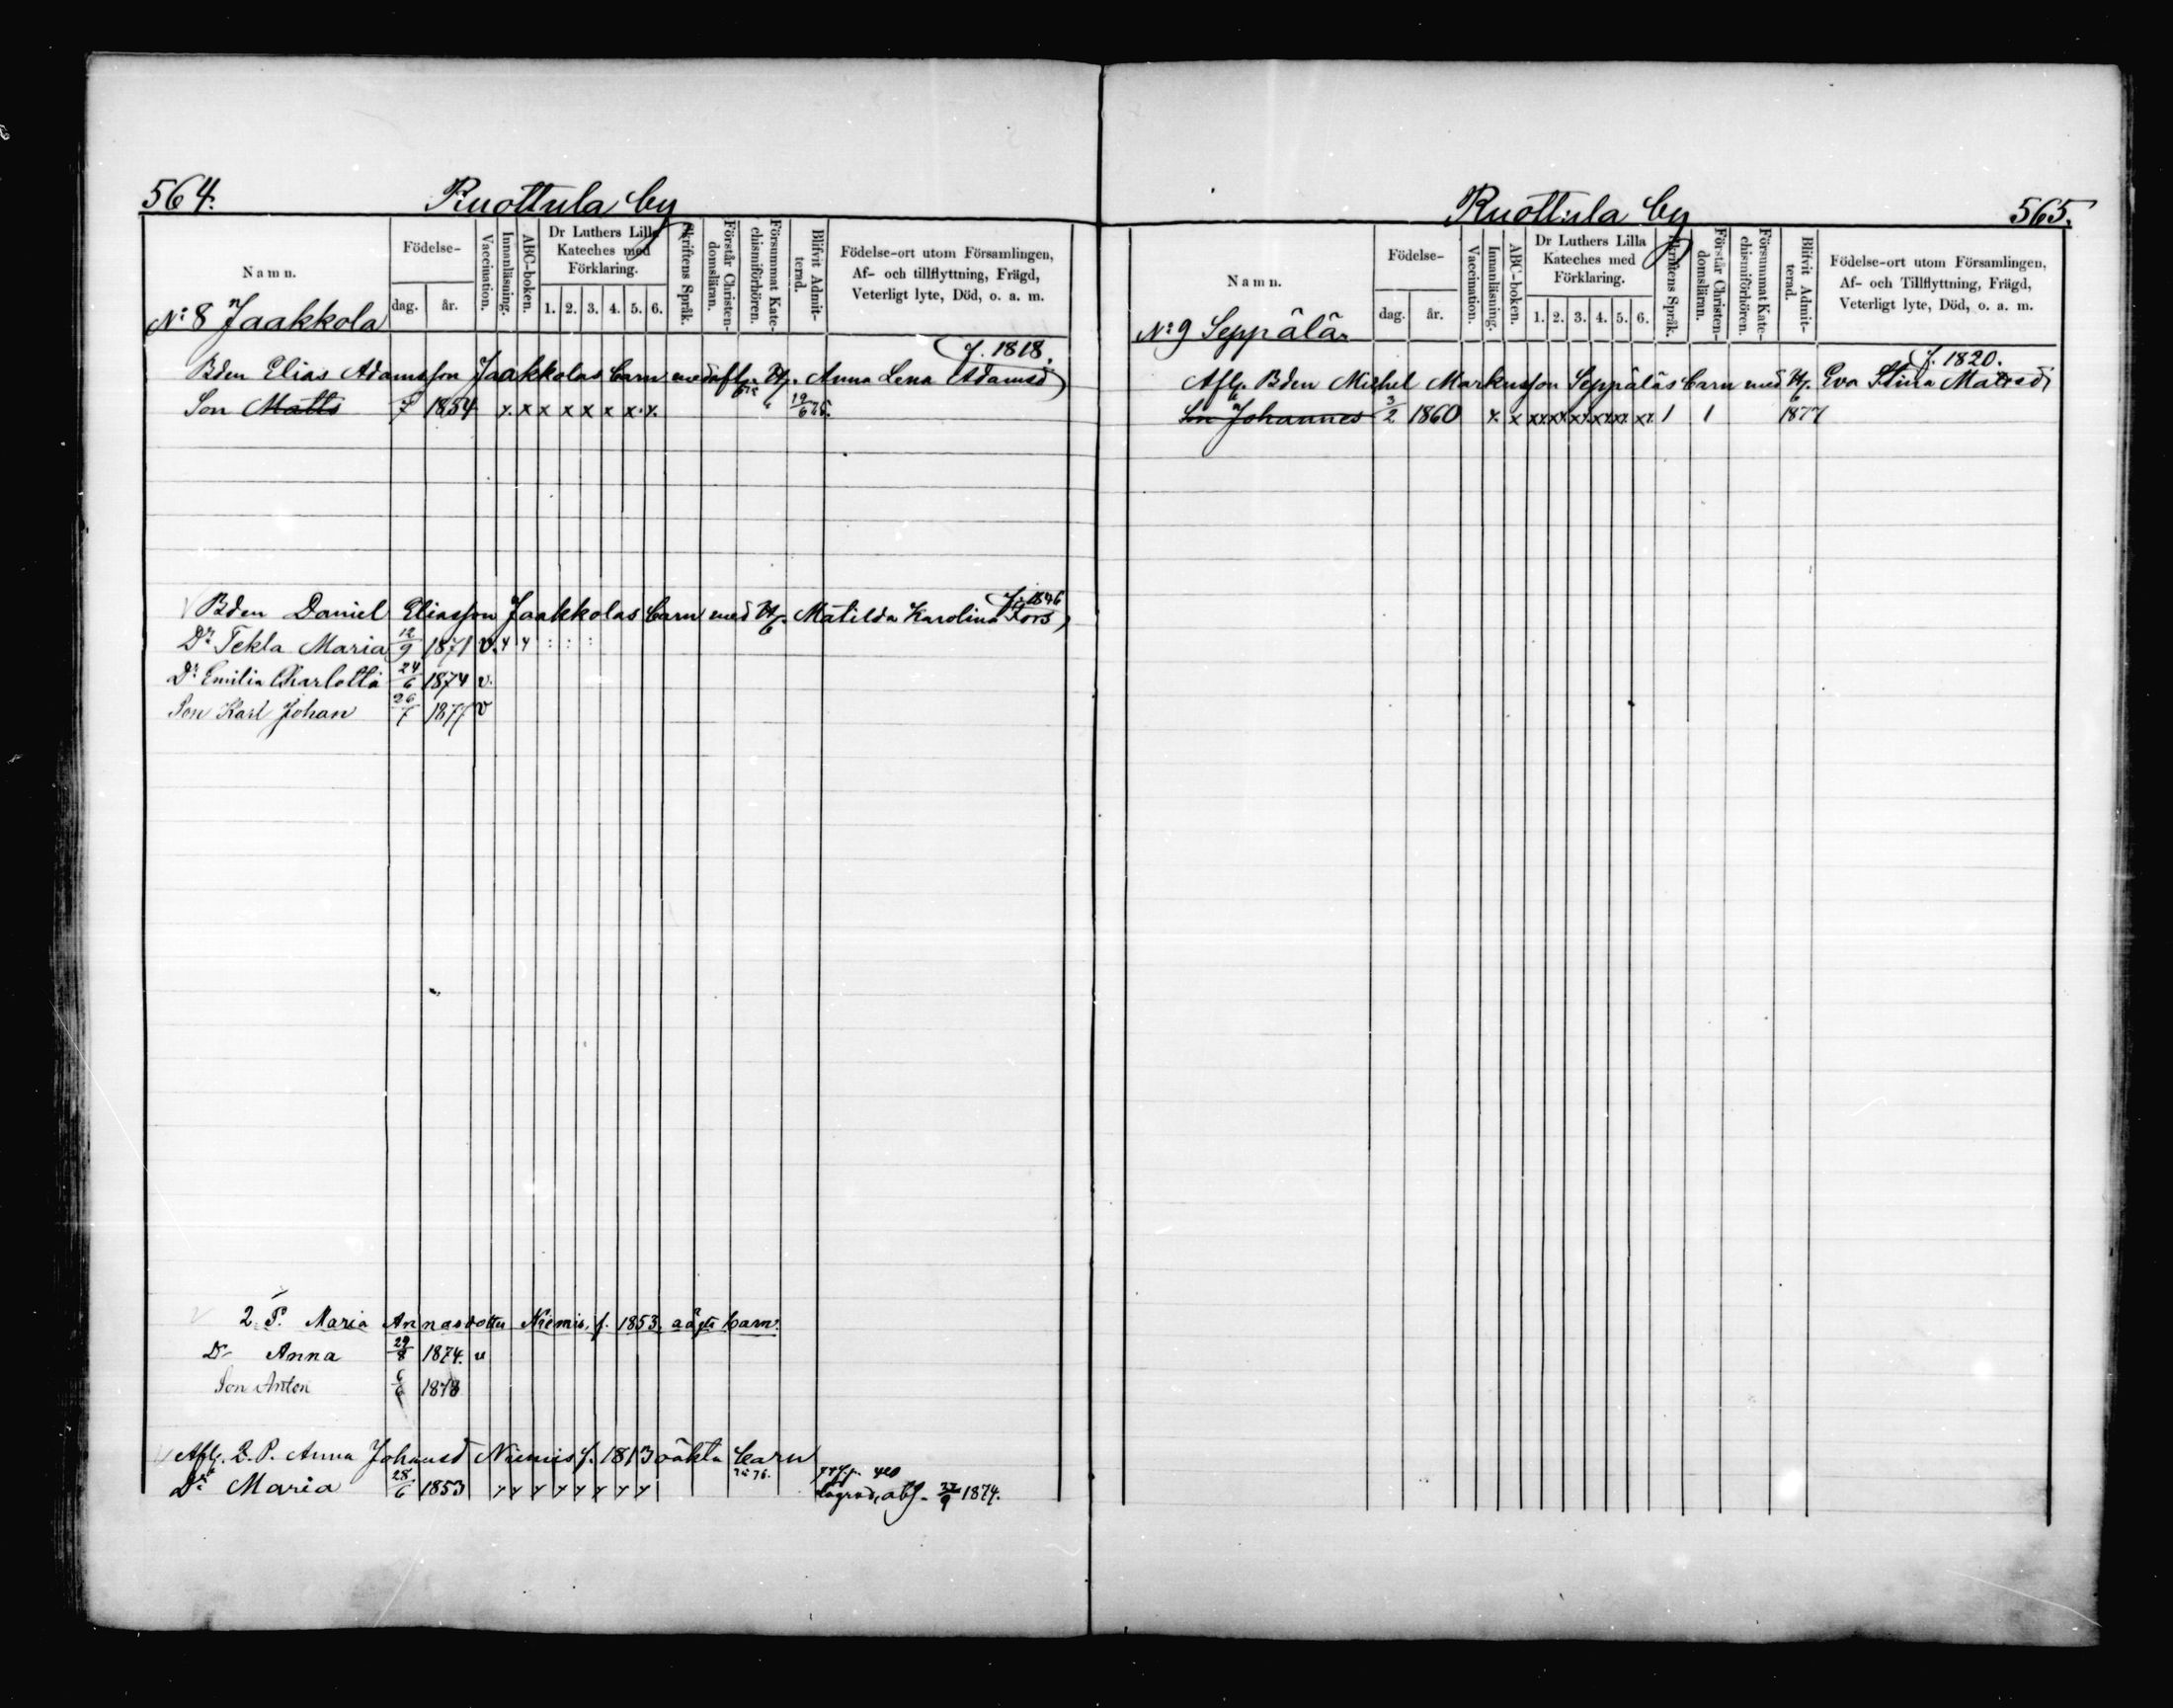 564.
Ruottula by
Namn.
Födelse-
dag.
år.
Vaccination.
Innanläsning.
ABC-boken.
Dr Luthers Lilla Kateches med Förklaring.
1. 2. 3. 4. 5. 6.
Skriftens Språk.
Förstår Christen-domsläran.
Försummat Kate-chismiförhören.
Blifvit Admit-terad.
Födelse-ort utom Församlingen,
Af- och tillflyttning, Frägd,
Veterligt lyte, Död, o. a. m.
No 8 Jaakkola
f. 1818.
Bden Elias Adamsson Jaakkolas barn med afl. H. Anna Lena Adamsd
Son Matts 7 1854 x x x x x x x x 19/6 75.
f. 1846
Bden Daniel Eliasson Jaakkolas barn med H. Matilda Karolina Fors
Dr Tekla Maria 12/9 1871 v. x x : : :
Dr Emilia Charlotta 24/6 1874 v.
Son Karl Johan 26/7 1877 v
2 P. Maria Annasdotter Niemis, f. 1853, oägta barn.
Dr Anna 29/8 1874. v
Son Anton 6/6 1878
Afl. Q. P. Anna Johansd Niemis f. 1813 oäkta barn
Dr Maria 28/6 1853 x x x x x x x x abs. 27/9 1874.
Ruottula by
565.
Namn.
Födelse-
dag.
år.
Vaccination.
Innanläsning.
ABC-boken.
Dr Luthers Lilla Kateches med Förklaring.
1. 2. 3. 4. 5. 6.
Skriftens Språk.
Förstår Christen-domsläran.
Försummat Kate-chismiförhören.
Blifvit Admit-terad.
Födelse-ort utom Församlingen,
Af- och Tillflyttning, Frägd,
Veterligt lyte, Död, o. a. m.
No 9 Seppälä
f. 1820.
Afl. Bden Michel Markusson Seppäläs barn med H. Eva Stina Matsd
Son Johannes 3/2 1860 x x xx xx xx xx xx xx 1 1 1877